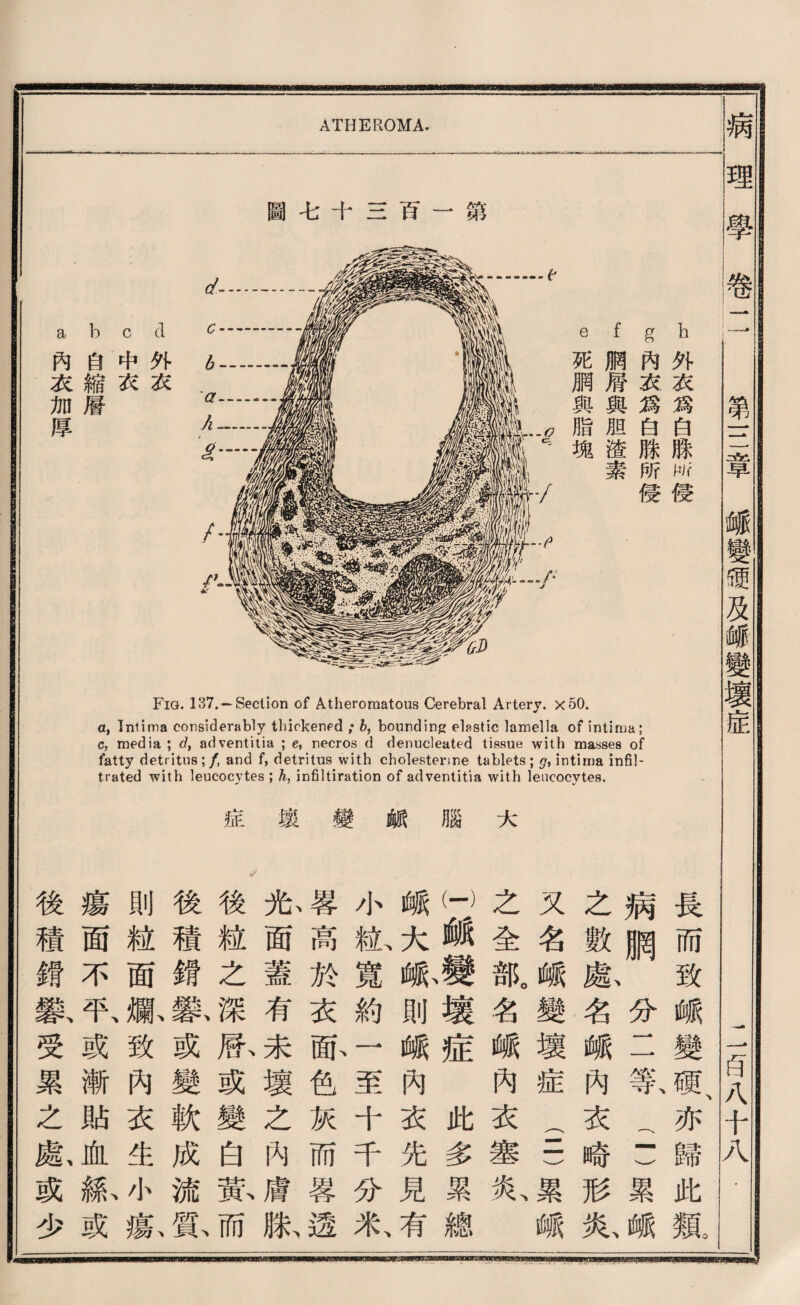 ATHEROMA.
病理學 卷二 第三章 衇變硬及衇變壞症 二百八十八
圖七十三百一第
d
c
b
a
h
g
f
f'
e
g
f
e
f'
GD
h 外衣爲白脒所侵
g 內衣爲白脒所侵
f 膶屑與胆渣素
e 死膶與脂塊
d 外衣
c 中衣
b 自縮層
a 內衣加厚
FIG. 137.—Section of Atheromatous Cerebral Artery. x50.
a, Intima considerably thickened; b, bounding elastic lamella of intima;
c, media; d, adventitia; e, necros d denucleated tissue with masses of
fatty detritus; f, and f, detritus with cholesterine tablets; g, intima infil-
trated with leucocytes; h, infiltiration of adventitia with leucocytes.
症壞變衇腦大
長而致衇變硬、亦歸此類。
病膶 分二等、(一)累衇
之數處、名衇內衣畸形炎、
又名衇變壞症(二)累衇
之全部。名衇內衣塞炎、
(一)衇變壞症 此多累總
衇大衇、則衇內衣先見有
小粒、寬約一至十千分米、
畧高於衣面、色灰而畧透
光、面蓋有未壞之內膚脒、
後粒之深層、或變白黃、而
後積鎖礬、或變軟成流質、
則粒面爛、致內衣生小瘍、
瘍面不平、或漸貼血絲、或
後積鎖礬、受累之處、或少